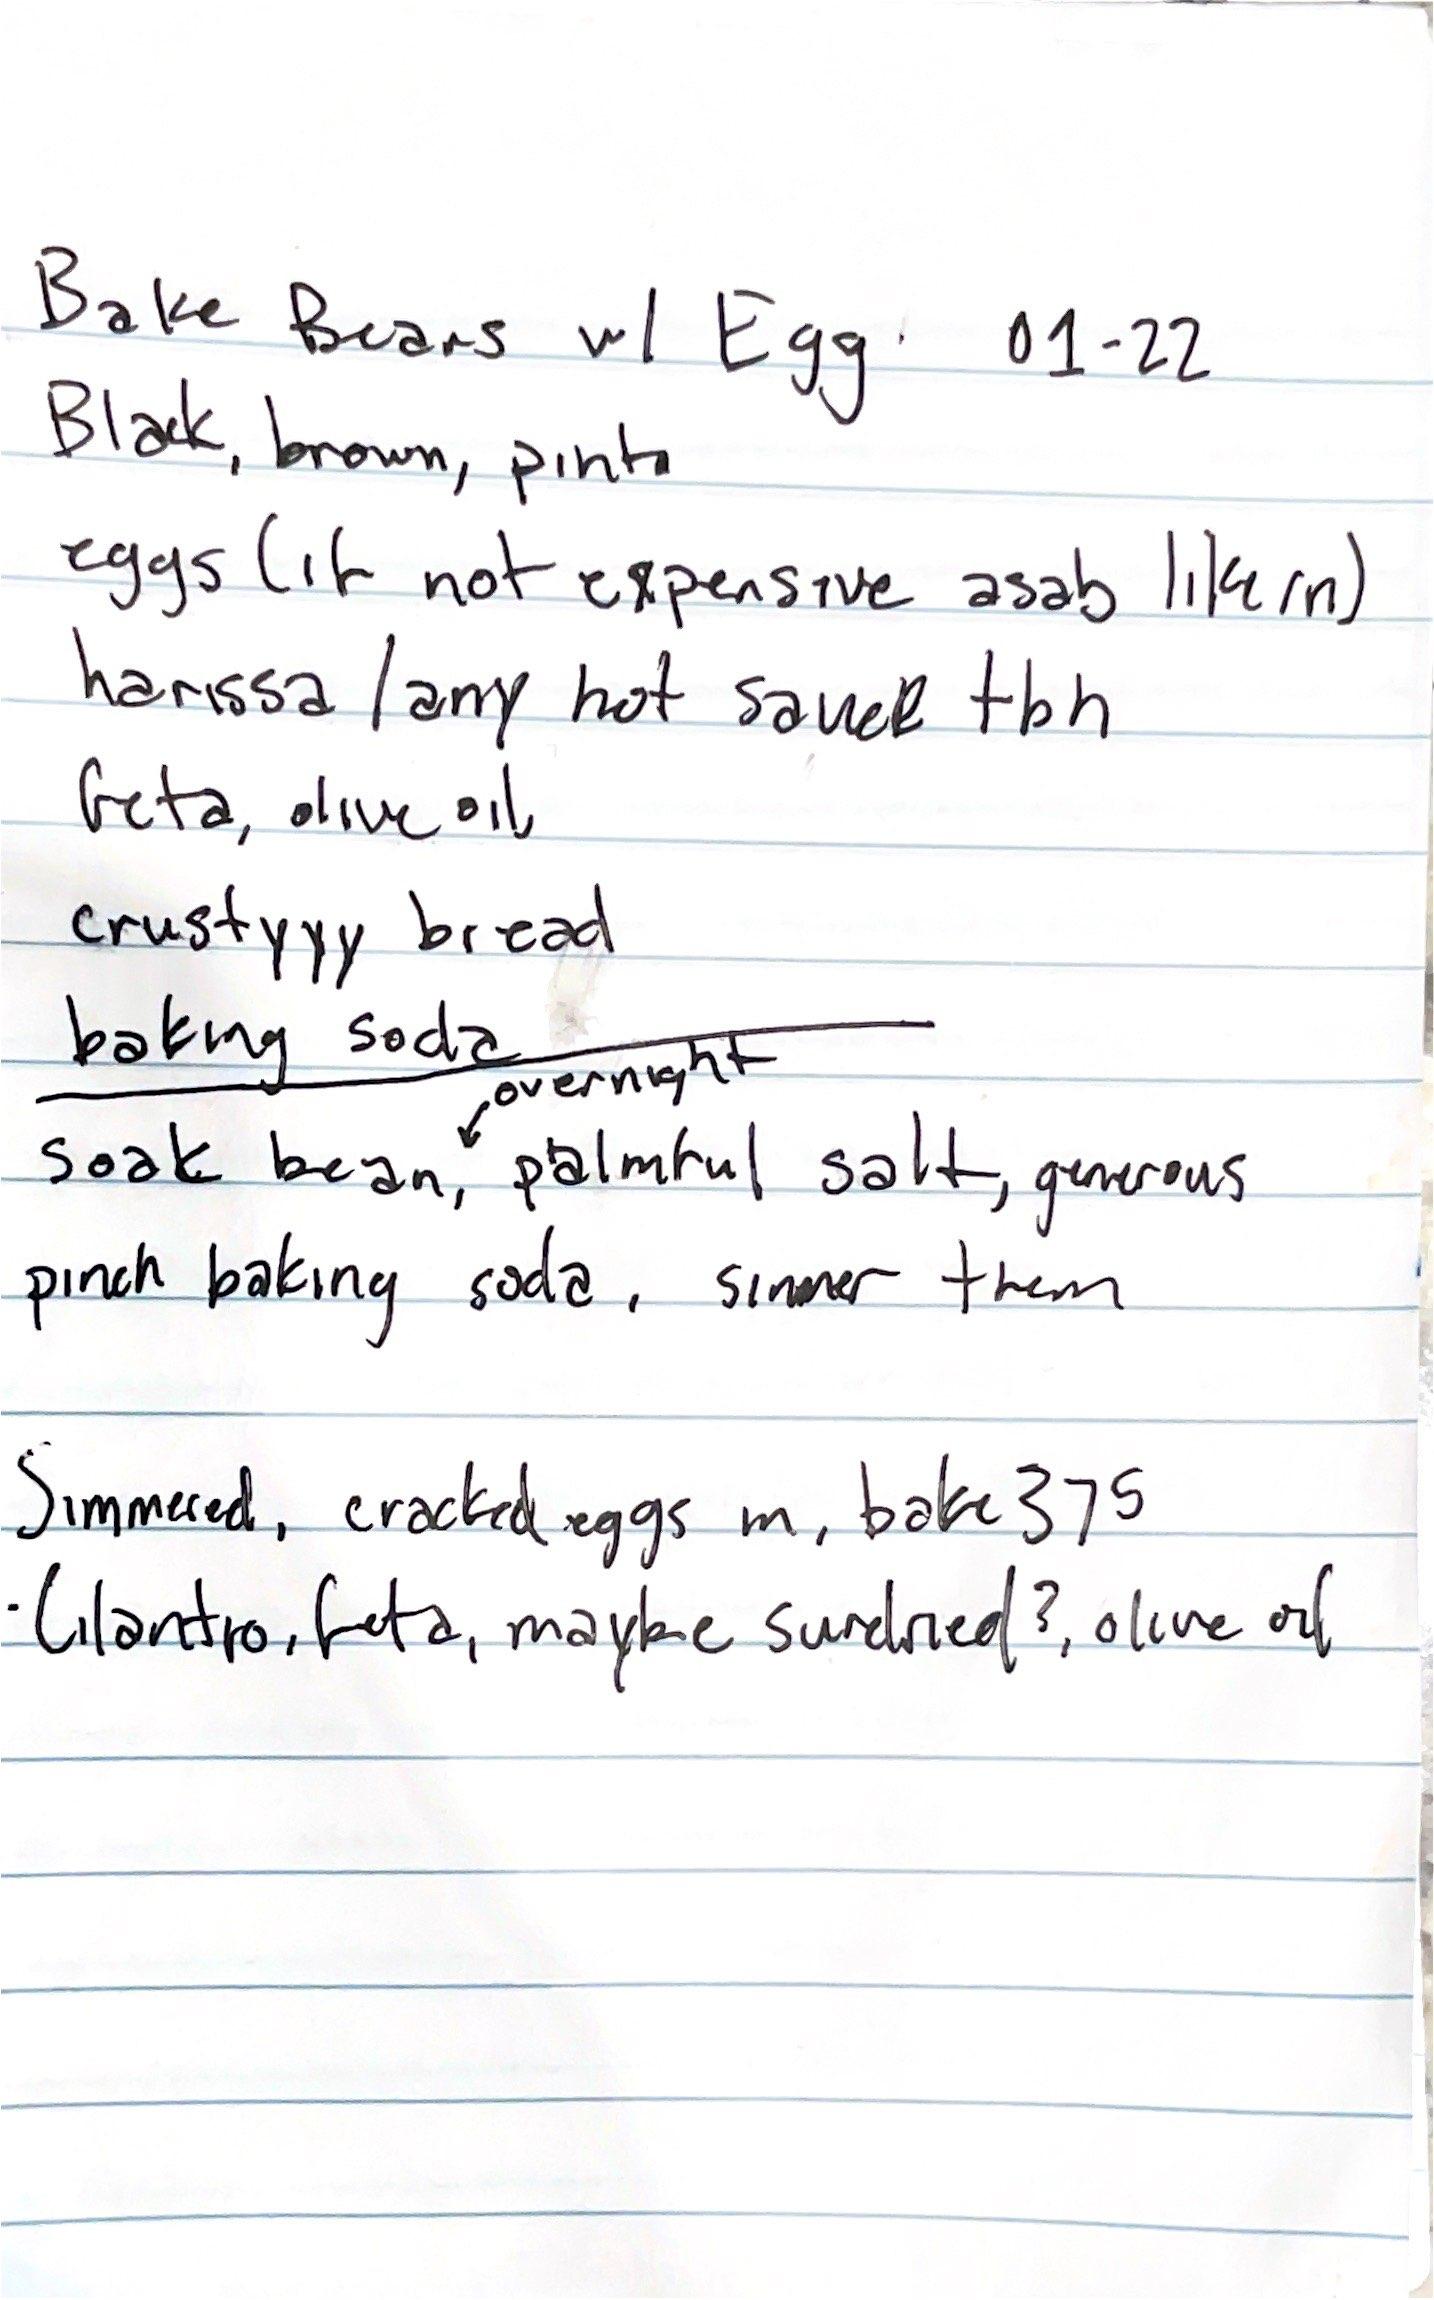 Bake Beans w/ Egg 01-22
Black, brown, pinto
eggs (if not expensive asab like rn)
harissa / any hot sauce tbh
feta, olive oil
crustyyy bread
baking soda
overnight
soak bean, palmful salt, generous
pinch baking soda, simmer them
Simmered, cracked eggs in, bake 375
· Cilantro, feta, maybe sundried?, olive oil